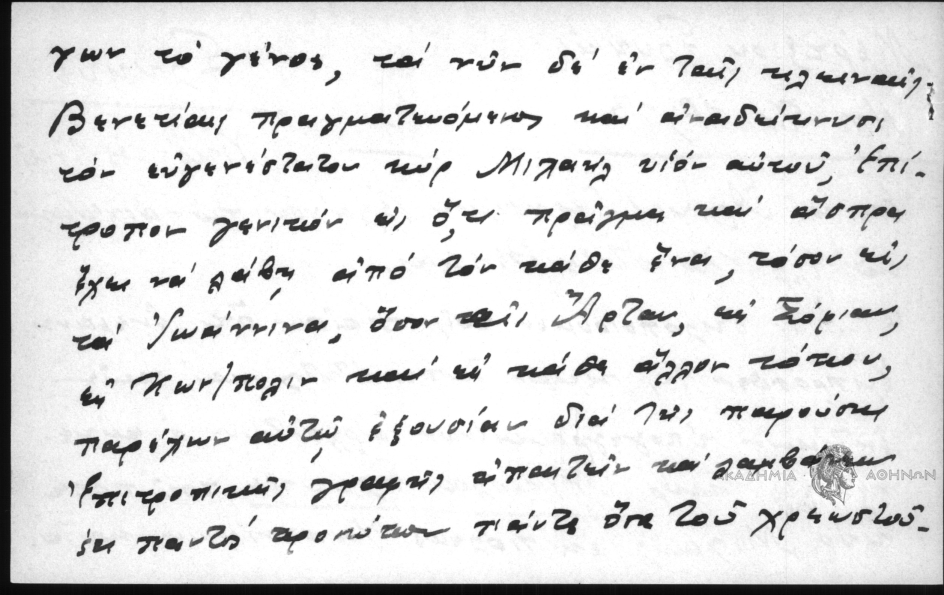 γων τὸ γένος, τὰ νῦν δέ ἐν ταῖς κλειναῖς
Βενετίαις πραγματευόμενος καί ἀναδείκνυσι
τόν εὐγενέστατον κύρ Μιχαήλ υἱόν αὐτοῦ, Ἐπί-
τροπον γενικόν εἰς ὅ,τι πρᾶγμα καί ἄσπρα
ἔχει νά λάβῃ ἀπό τόν κάθε ἕνα, τόσον εἰς
τά Ἰωάννινα, ὅσον καί εἰς Ἄρταν, εἰς
εἰς Κων/πολιν καί εἰς κάθε ἄλλον τόπον,
παρέχων αὐτῷ ἐξουσίαν διά τῆς παρούσης
Ἐπιτροπικῆς γραφῆς ἀπαιτεῖν καί λαμβάνειν
ἐκ παντός προσώπου πάντα ὅσα τοῦ χρεωστοῦ-
ΑΚΑΔΗΜΙΑ ΑΘΗΝΩΝ